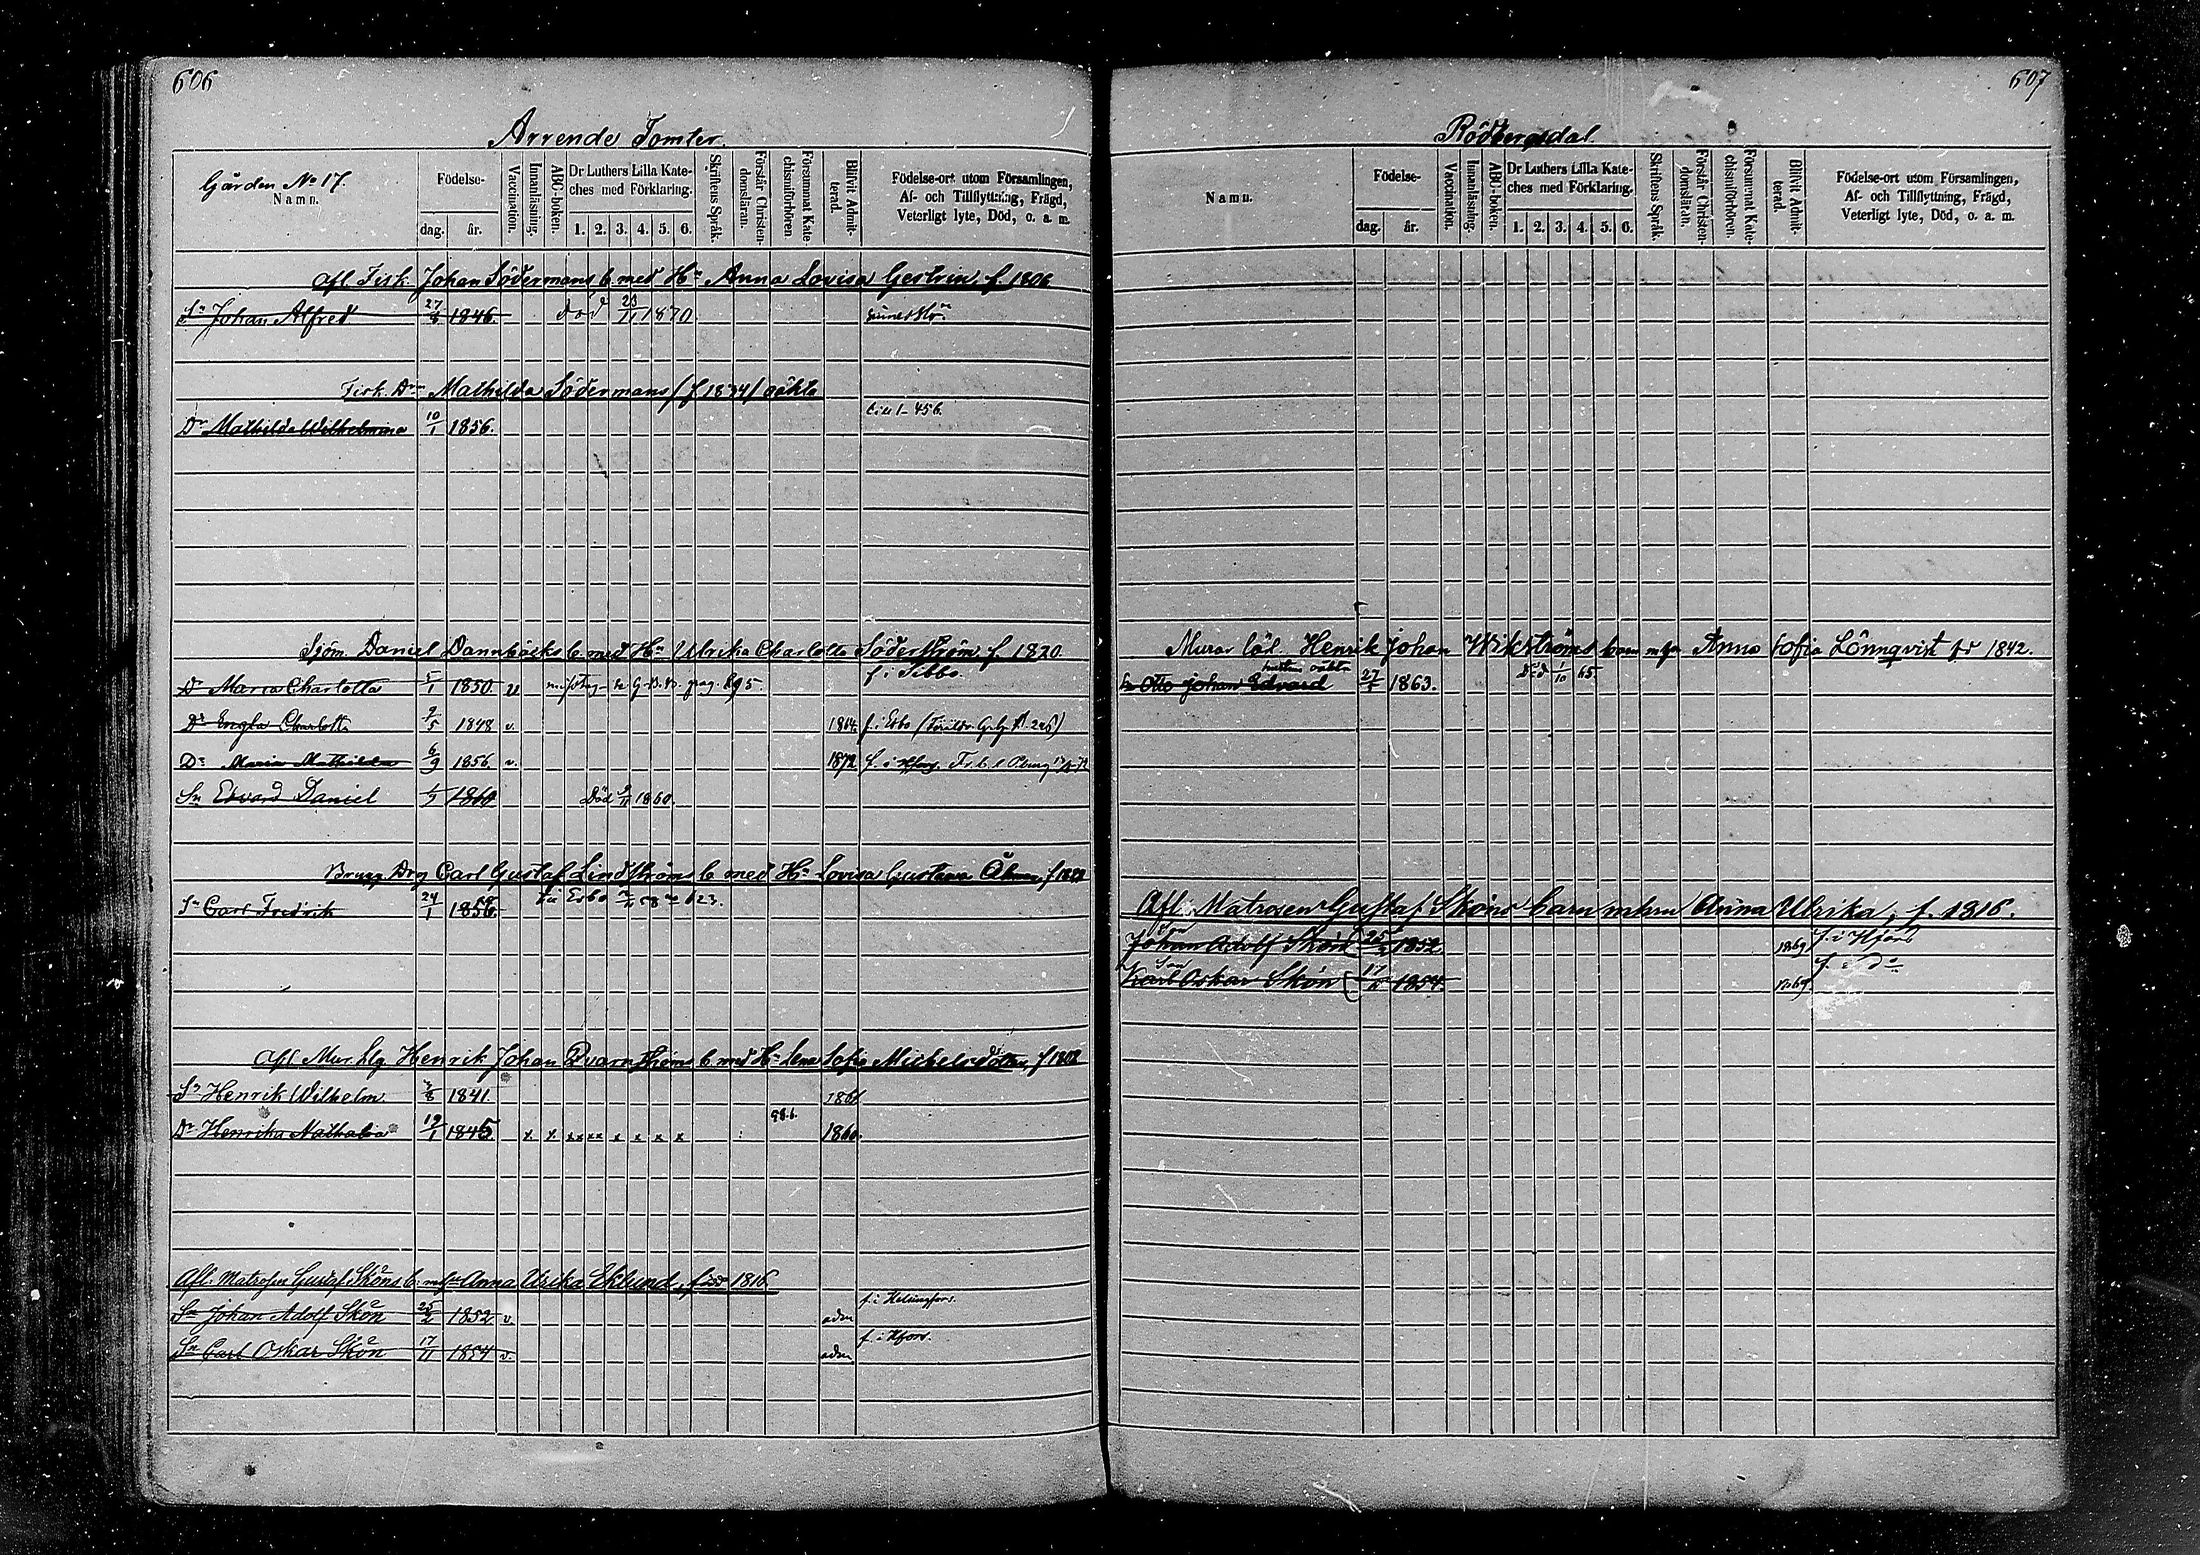 606
Arrende Tomter.
Gården No 17.
Namn.
Födelse-
dag. år.
Vaccination.
Innanläsning.
ABC-boken.
Dr Luthers Lilla Kate-
ches med Förklaring.
1. 2. 3. 4. 5. 6.
Skriftens Språk.
Förstår Christen-
domsläran.
Försummat Kate-
chismiförhören
Blifvit Admit-
terad.
Födelse-ort utom Församlingen,
Af- och Tillflyttning, Frägd,
Veterligt lyte, Död, o. a. m.
Afl. Fisk. Johan Södermans b med Hn Anna Lovisa Gestrin f. 1806
Sn Johan Alfred 27/8 1846. död 23/11 1870
Fisk. Dr Mathilda Södermans (f 1834) oäkta
Dr Mathilda Wilhelmina 10/1 1856. till 1-456.
Sjöm. Daniel Dannbäcks b med Hn Ulrika Charlotta Söderström f. 1820.
Dr Maria Charlotta 5/1 1850. v pag. 895. f i Sibbo.
Dr Engla Charlotta 9/5 1848 v. 1864. f. i Esbo
Dr Maria Mathilda 6/9 1856 v. 1872 f. i Hfors.
Sn Edvard Daniel 1/9 1860 Död 9/11 1860.
Brygg Drg Carl Gustaf Lindströms b med Hn Lovisa Gustava Åman, f
Sn Carl Fredrik 24/1 1856 till Esbo 58 623.
Afl Mur. Lg Henrik Johan Qvarnströms b med Hn Lena Sofia Michelsdotter, f 1808
Sn Henrik Wilhelm 3/8 1841. 1861
Dr Henrika Nathalia 19/1 1845 x x xx xx x x x x 98.6. 1860.
Afl. Matrosen Gustaf Sköns b. m Hn Anna Ulrika Eklund, född 1816
Sn Johan Adolf Skön 25/2 1852 v. adm f. i Helsingfors.
Sn Carl Oskar Skön 17/11 1854 v. adm f. i Hfors.
607
Rödbergsdal.
Namn.
Födelse-
dag. år.
Vaccination.
Innanläsning.
ABC-boken.
Dr Luthers Lilla Kate-
ches med Förklaring.
1. 2. 3. 4. 5. 6.
Skriftens Språk.
Förstår Christen-
domsläran.
Försummat Kate-
chismiförhören.
Blifvit Admit-
terad.
Födelse-ort utom Församlingen,
Af- och Tillflyttning, Frägd,
Veterligt lyte, Död, o. a. m.
Murar lös Henrik Johan Wikströms barn m Anna Sofia Lönnqvist född 1842.
hustrus oäkta
Sn Otto Johan Edvard 1863. Död 1/10 65.
Afl. Matrosen Gustaf Sköns barn m hn Anna Ulrika, f. 1816.
Son
Johan Adolf Skön 25/2 1852 1869 f. i Hfors
Son
Karl Oskar Skön 17/11 1854. 1869 f. i Do